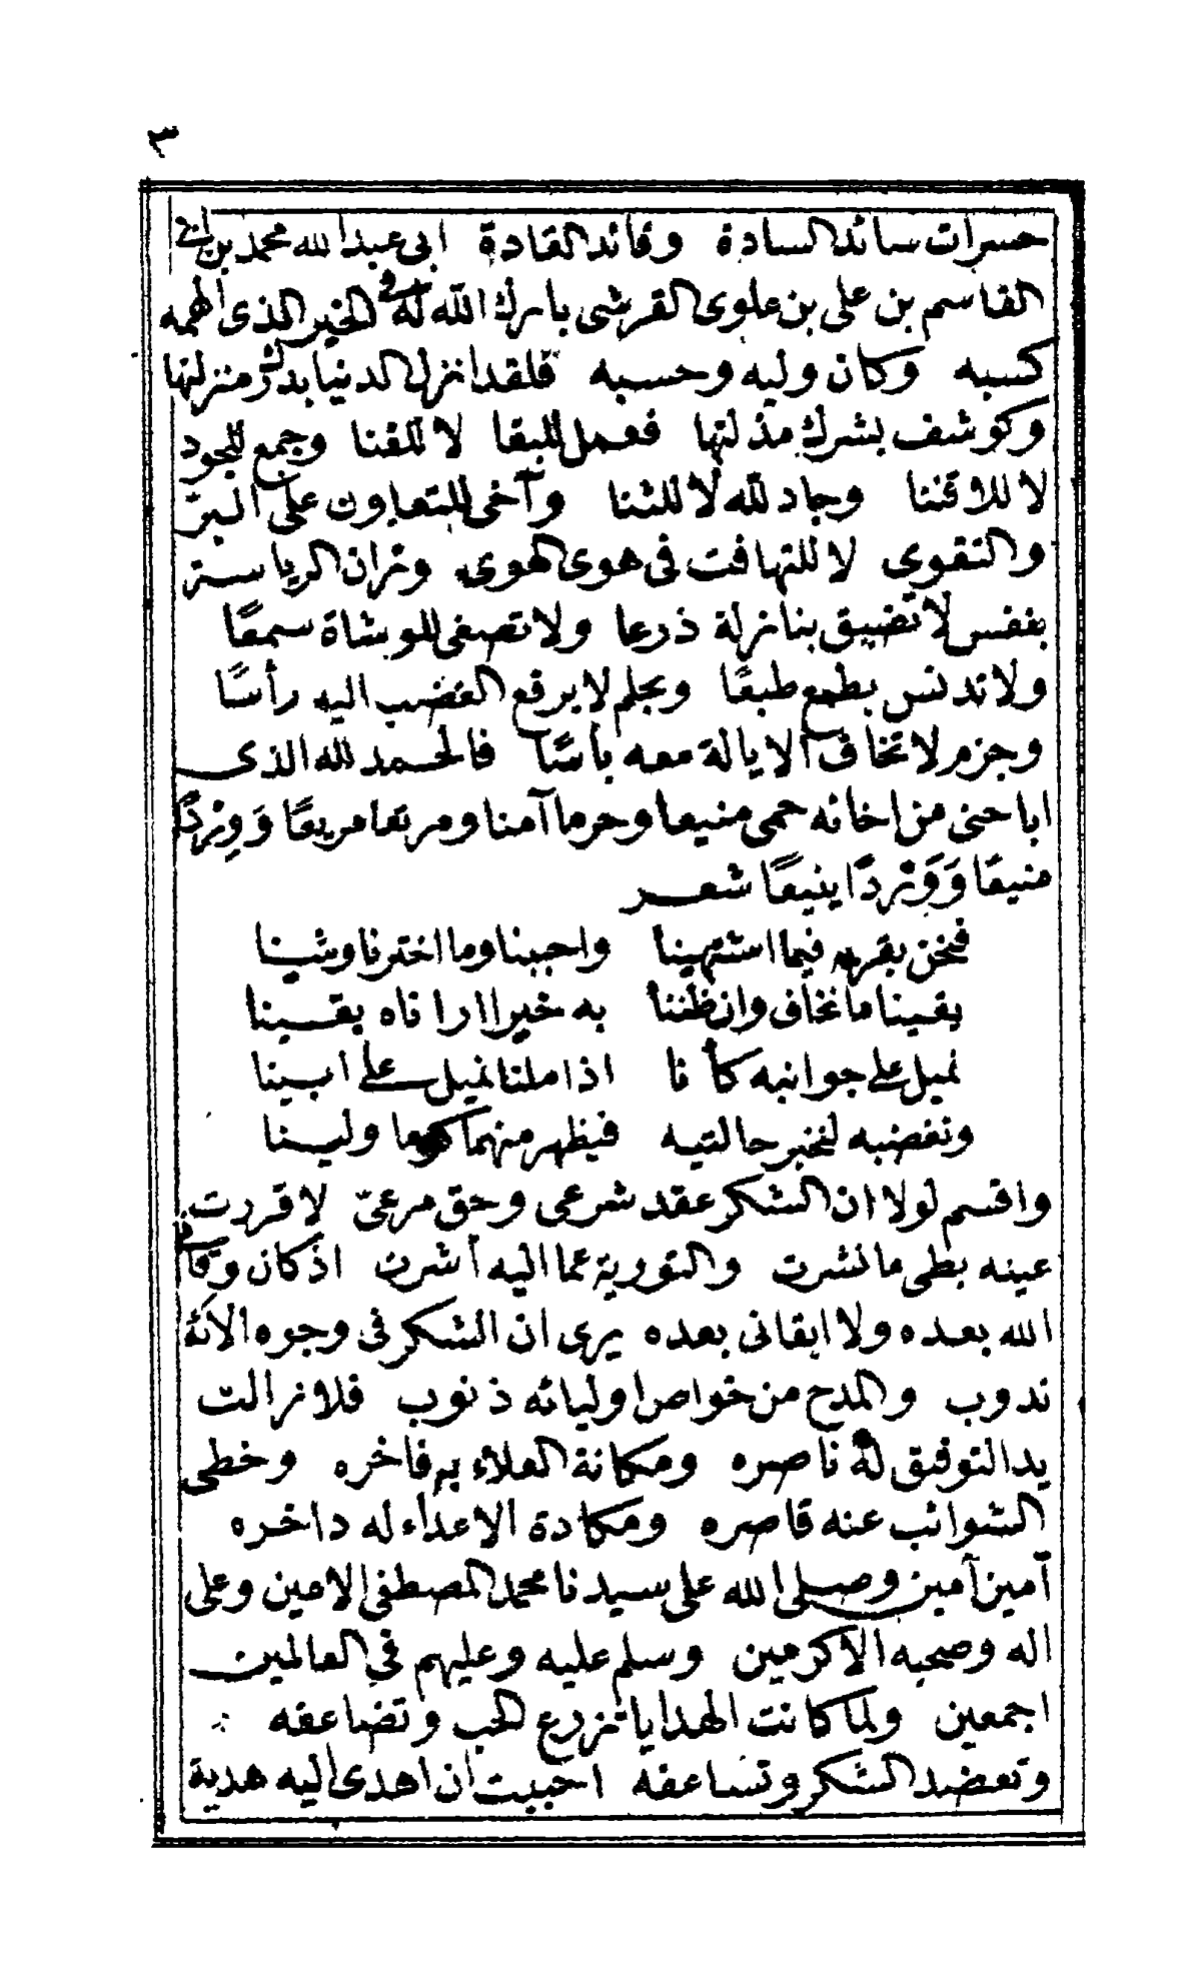 ٣
حسرات سائد السادة وقائد القادة ابى عبد الله محمد بن ابى
القاسم بن على بن علوى القرشى بارك الله له فى الخير الذى الهمه
كسبه وكان وليه وحسبه فلقد انزل الدنيا بدكثر منزلتها
وكوشف بشرك مذلتها فعمل للبقا لا للفنا وجمع للجود
لا للاقتنا وجاد لله لا للثنا وآخى للتعاون على البرّ
والتقوى لا للتهافت فى هوى الهوى وزان الرياسة
بنفس لا تضيق بنازلة ذرعا ولا تصغى للوشاة سمعًا
ولا تدنس بطمع طبعًا وبحلم لا يرفع الغضب اليه رأسًا
وحزم لا تخاف الايالة معه بأسًا فالحمد لله الذى
اباحنى من اخائه حمى منيعا وحرما آمنا ومرتعا مريعًا وَوِرْدًا
منيعًا وَوَرْدًا ينيعًا شعر
فنحن بقربه فيما اشتهينا واحببنا وما اخترنا وشينا
يقينا ما نخاف وان ظننا به خيرا ارا ناه يقينا
نميل على جوانبه كأنا اذا ملنا نميل على ابينا
ونغضبه لنخبر حالتيه فيظهر منهما كرما ولينا
واقسم لولا ان الشكر عقد شرعى وحق مرعىّ لاقررت
عينه بطى ما نشرت والتورية عما اليه أشرت اذ كان وقانى
الله بعده ولا ابقانى بعده يرى ان الشكر فى وجوه الآئه
ندوب والمدح من خواص اوليائه ذنوب فلا زالت
يد التوفيق له ناصره ومكانة العلاء به فاخره وخطى
الشوائب عنه قاصره ومكادة الاعداء له داخره
آمين آمين وصلى الله على سيدنا محمد المصطفى الامين وعلى
اله وصحبه الاكرمين وسلم عليه وعليهم فى العالمين
اجمعين ولما كانت الهدايا تزرع الحب وتضاعفه
وتعضد الشكر وتساعفه احببت ان اهدى اليه هدية